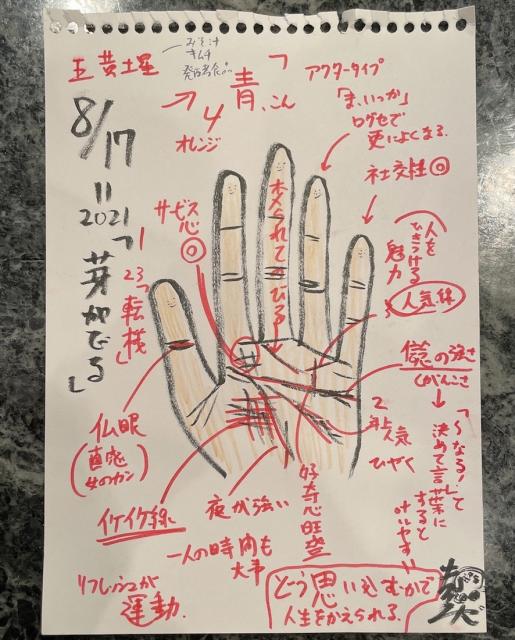 五黄土星
みそ汁
キムチ
発酵食品
8/17
=
2021
「芽がでる」
23「転機」
7
青、こん
4
オレンジ
アクタータイプ
「ま、いっか」
口グセで
更によくなる。
社交性◎
サービス
心
◎
ホメられてのびる
人を
ひきつける
魅力
3
人気線
信念の強さ
(がんこさ
「〜なる!」って
決めて言葉に
すると
叶いやすい
2
人気
ひやく
仏眼
(直感
女のカン)
イケイケ線
夜が強い
好奇心旺盛
一人の時間も
大事
リフレッシュが
運動。
どう思い込むかで
人生をかえられる。